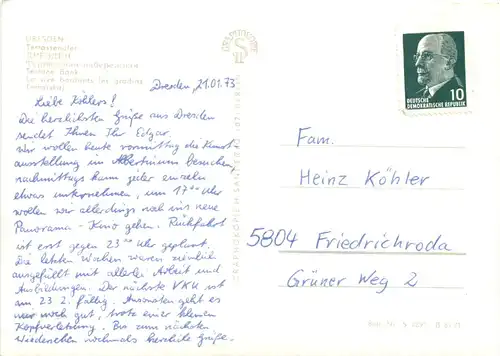 DRESDEN
Terrassenufer
Dresden, 21.01.73
Liebe Köhlers!
Die herzlichsten Grüße aus Dresden
sendet Ihnen Ihr Edgar.
Wir wollen heute vormittag die Kunst-
ausstellung im Albertinum besuchen,
nachmittags kann jeder einzeln
etwas unternehmen, um 17⁰⁰ Uhr
wollen wir allerdings noch ins neue
Panorama-Kino gehen. Rückfahrt
ist erst gegen 23⁰⁰ Uhr geplant.
Die letzten Wochen waren ziemlich
ausgefüllt mit allerlei Arbeit und
Ausbildungen. Der nächste VKU ist
am 23.2. fällig. Ansonsten geht es
mir noch gut, trotz einer kleinen
Kopfverletzung. Bis zum nächsten
Wiedersehen nochmals herzliche Grüße.
10
DEUTSCHE
DEMOKRATISCHE REPUBLIK
Fam.
Heinz Köhler
5804 Friedrichroda
Grüner Weg 2